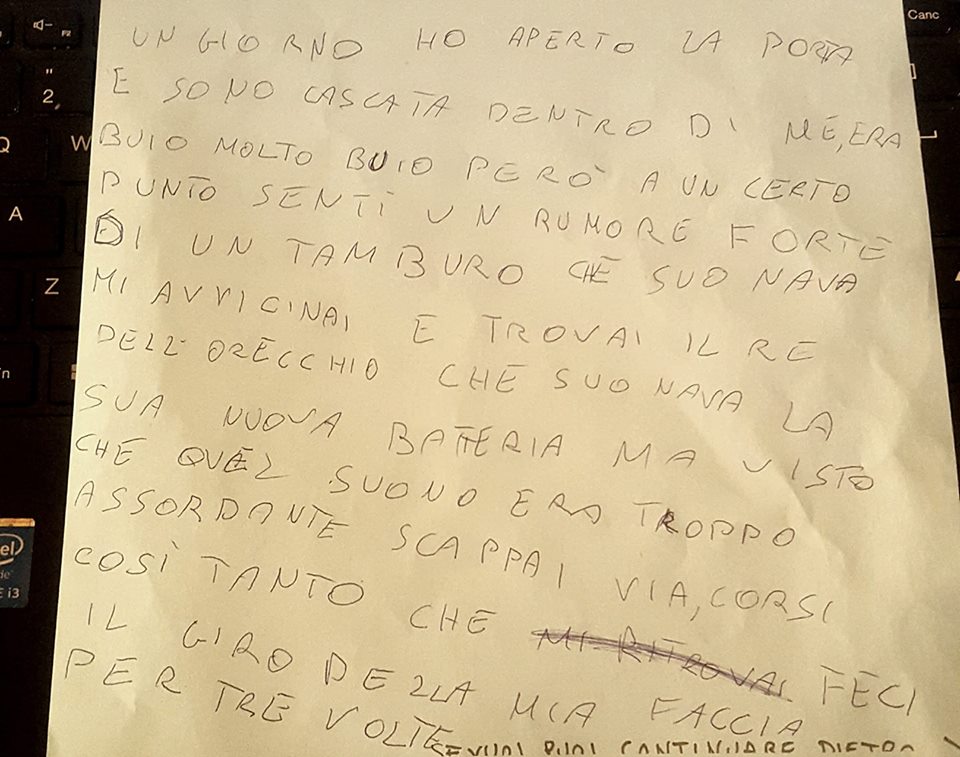 UN GIORNO HO APERTO LA PORTA
E SONO CASCATA DENTRO DI ME, ERA
BUIO MOLTO BUIO PERÒ A UN CERTO
PUNTO SENTÌ UN RUMORE FORTE
DI UN TAMBURO CHE SUONAVA
MI AVVICINAI E TROVAI IL RE
DELL'ORECCHIO CHE SUONAVA LA
SUA NUOVA BATTERIA MA VISTO
CHE QUEL SUONO ERA TROPPO
ASSORDANTE SCAPPAI VIA, CORSI
COSÌ TANTO CHE MI RITROVAI FECI
IL GIRO DELLA MIA FACCIA
PER TRE VOLTE
SE VUOI PUOI CONTINUARE DIETRO
Canc
F2
"
2
Q
W
A
Z
intel
i3